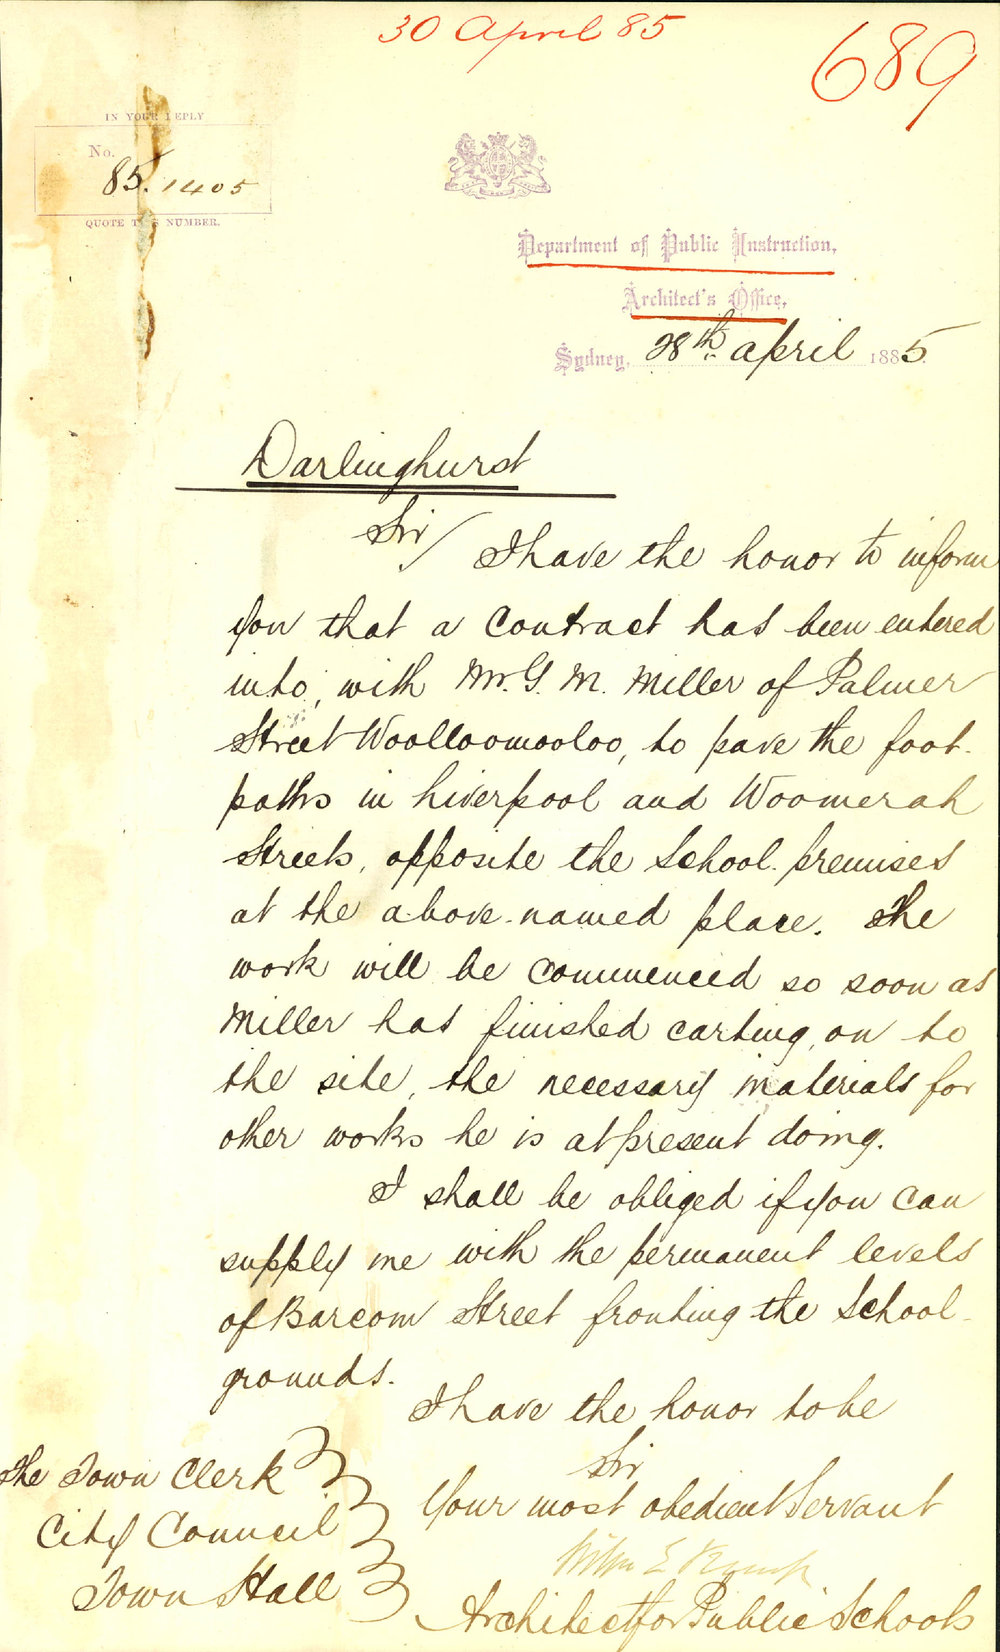 30 April 85
689
IN YOUR REPLY
No.
85.1405
QUOTE THIS NUMBER.
Department of Public Instruction,
Architect's Office,
Sydney, 28th April 1885.
Darlinghurst
Sir/
I have the honor to inform
you that a Contract has been entered
into, with Mr. G. M. Miller of Palmer
Street Woolloomooloo, to pave the foot-
paths in Liverpool and Woomerah
Streets, opposite the School premises
at the above-named place. The
work will be commenced so soon as
Miller has finished carting, on to
the site, the necessary materials for
other works he is at present doing.
I shall be obliged if you can
supply me with the permanent levels
of Barcom Street fronting the School-
grounds.
I have the honor to be
Sir
Your most obedient Servant
Kemp
Architect for Public Schools
The Town Clerk
City Council
Town Hall